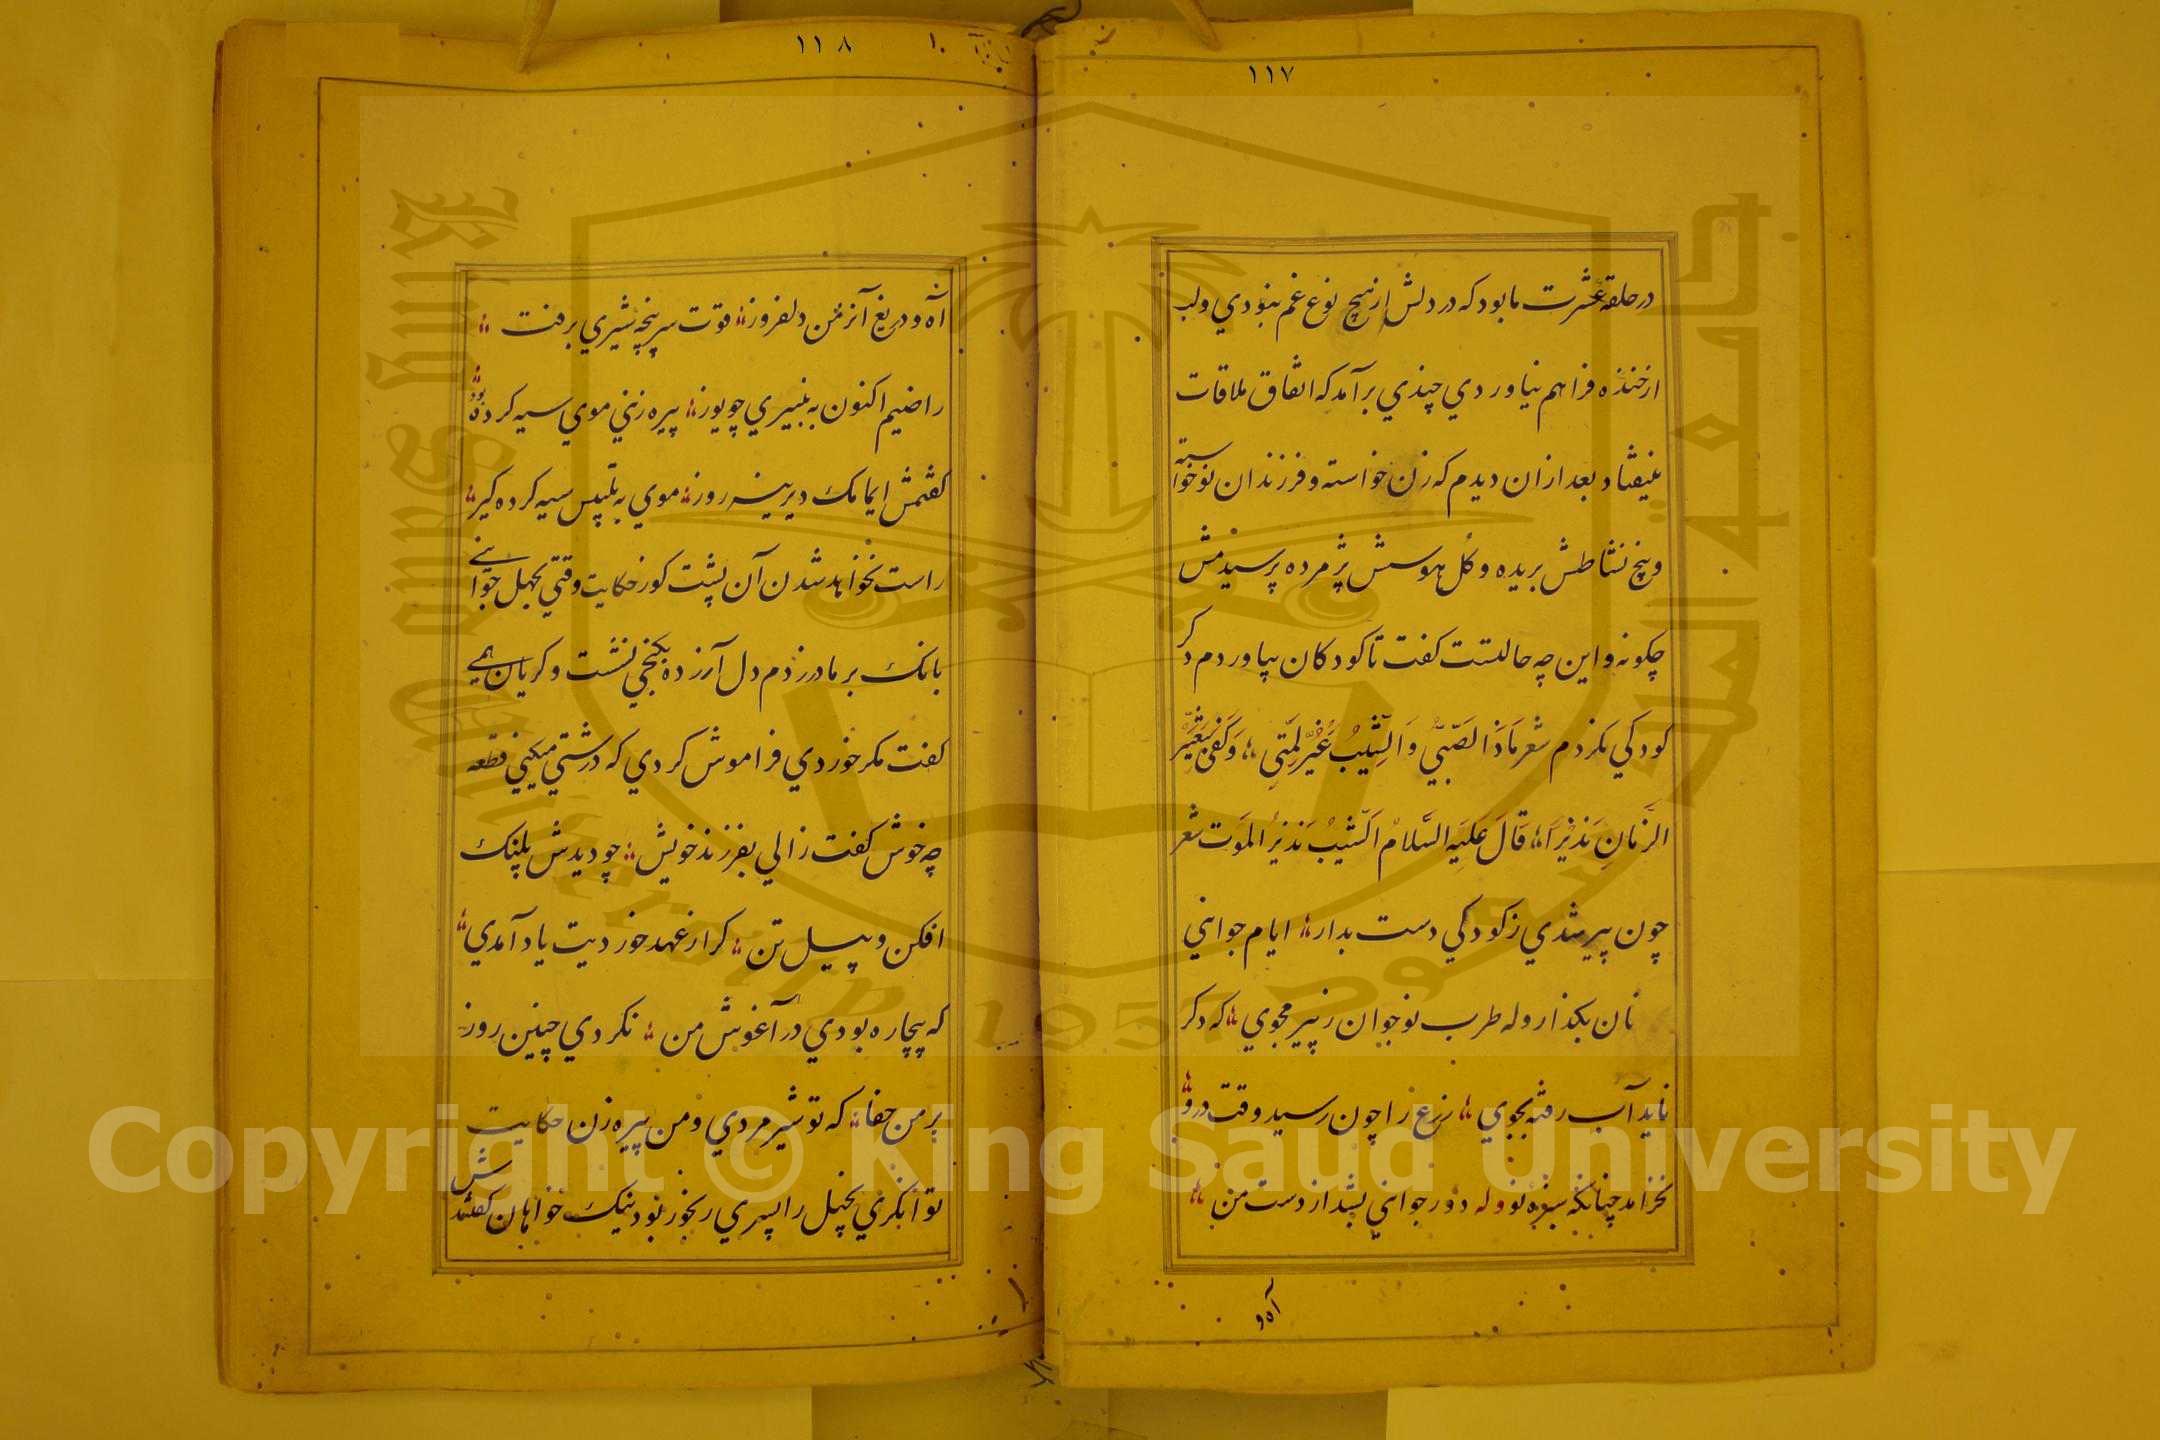 ١١٧
در حلقه عشرت ما بود که در دلش از هیچ نوع غم نبودي و لب
از خنده فراهم نیاوردي چندي برآمد که اتفاق ملاقات
نیفتاد بعد ازان دیدم که زن خواسته و فرزندان نوخواسته
و بیخ نشاطش بریده و گل هوسش پژمرده پرسیدمش
چکونه و این چه حالتست کفت تا کودکان بیاوردم دکر
کودکي نکردم شعر مَاذَا الصَّبِيُّ وَالشَّيْبُ غَيَّرَ لِمَّتِي وَكَفَى بِتَغْيِيْرِ
الزَّمَانِ نَذِيْرًا قَالَ عَلَيْهِ السَّلَامُ اَلشَّيْبُ نَذِيْرُ الْمَوْتِ شعر
چون پیر شدي ز کودکي دست بدار ایام جواني
نان بکذار وله طرب نوجوان ز پیر مجوي که دکر
ناید آب رفته بجوي زرع را چون رسید وقت درو
نخرامد چنانکه سبزه نو وله دور جواني بشد از دست من
آه و
١١٨
آه و دریغ آن زمن دلفروز قوت سرپنجه شیري برفت
راضیم اکنون به پنیري چو یوز پیره زني موي سیه کرده بود
کفتمش ای مامک دیرینه روز موي به تلبیس سیه کرده کیر
راست نخواهد شدن آن پشت کوز حکایت وقتي بجهل جواني
بانک بر مادر زدم دل آرزده بکنجي نشست و کریان همي
کفت مکر خوردي فراموش کردي که درشتي میکني قطعه
چه خوش کفت زالي بفرزند خویش چو دیدش پلنک
افکن و پیل تن کر از عهد خوردیت یاد آمدي
که بیچاره بودي در آغوش من نکردي چنین روز
بر من جفا که تو شیر مردي و من پیره زن حکایت
توانکري بخیل را پسري رنجور بود نیک خواهان کفتندش
Copyright © King Saud University
King Saud University
1957
جامعة الملك سعود